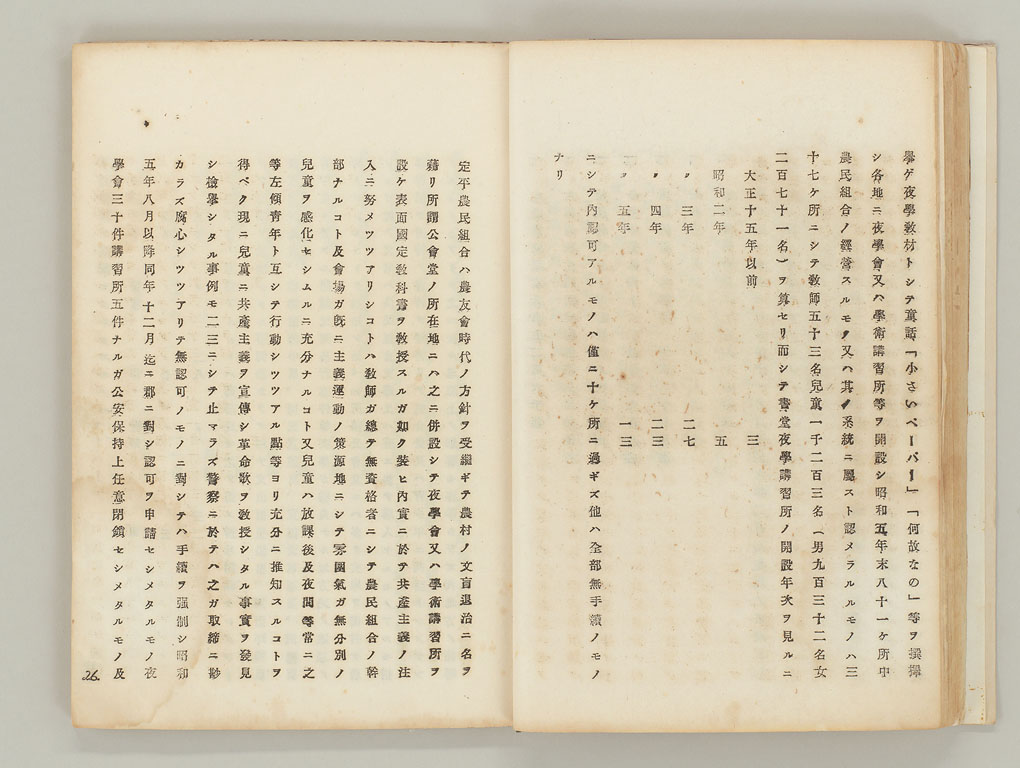 學ゲ夜學敎材トシテ童話「小さいペーパー」「何故なの」等ヲ撰擇
シ各地ニ夜學會又ハ學術講習所等ヲ開設シ昭和五年末八十一ケ所中
農民組合ノ經營スルモノ又ハ其ノ系統ニ屬スト認メラルルモノハ三
十七ケ所ニシテ敎師五十三名兒童一千二百三名（男九百三十二名女
二百七十一名）ヲ算セリ而シテ書堂夜學講習所ノ開設年次ヲ見ルニ
大正十五年以前 三
昭和二年 五
〃 三年 二七
〃 四年 二三
〃 五年 一三
ニシテ內認可アルモノハ僅ニ十ケ所ニ過ギズ他ハ全部無手續ノモノ
ナリ
定平農民組合ハ農友會時代ノ方針ヲ受繼ギテ農村ノ文盲退治ニ名ヲ
藉リ所謂公會堂ノ所在地ニハ之ニ併設シテ夜學會又ハ學術講習所ヲ
設ケ表面國定敎科書ヲ敎授スルガ如ク裝ヒ內實ニ於テ共產主義ノ注
入ニ努メツツアリシコトハ敎師ガ總テ無資格者ニシテ農民組合ノ幹
部ナルコト及會場ガ旣ニ主義運動ノ策源地ニシテ雰圍氣ガ無分別ノ
兒童ヲ感化セシムルニ充分ナルコト又兒童ハ放課後及夜間等常ニ之
等左傾靑年ト互シテ行動シツツアル點等ヨリ充分ニ推知スルコトヲ
得ベク現ニ兒童ニ共產主義ヲ宣傳シ革命歌ヲ敎授シタル事實ヲ發見
シ檢擧シタル事例モ二三ニシテ止マラズ警察ニ於テハ之ガ取締ニ尠
カラズ腐心シツツアリテ無認可ノモノニ對シテハ手續ヲ强制シ昭和
五年八月以降同年十二月迄ニ郡ニ對シ認可ヲ申請セシメタルモノ夜
學會三十件講習所五件ナルガ公安保持上任意閉鎖セシメタルモノ及
26.